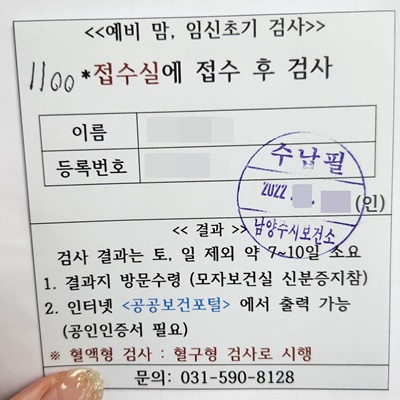 <<예비 맘, 임신초기 검사>>
1100 *접수실에 접수 후 검사
이름
등록번호
수납필
2022.
남양주시보건소
(인)
<< 결과 >>
검사 결과는 토, 일 제외 약 7~10일 소요
1. 결과지 방문수령 (모자보건실 신분증지참)
2. 인터넷 <공공보건포털> 에서 출력 가능
(공인인증서 필요)
※ 혈액형 검사 : 혈구형 검사로 시행
문의: 031-590-8128